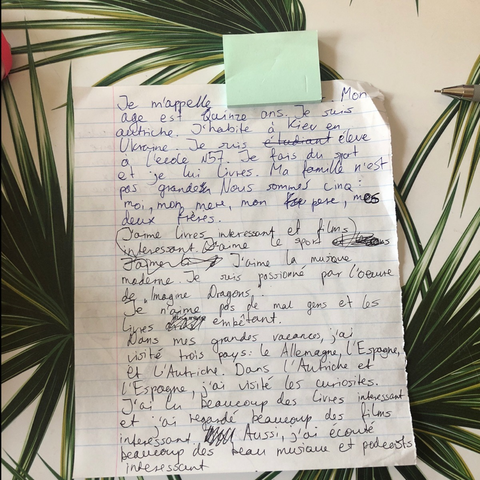 Je m'appelle Mon
âge est Quinze ans. Je suis
autriche. J'habite à Kiev en
Ukraine. Je suis étudiant élève
à l'école N57. Je fais du spot
et je lui livres. Ma famille n'est
pas grande. Nous sommes cinq:
moi, mon mere, mon pere, mes
deux frères.
J'aime livres interessant et films
interessant. J'aime le sport
J'aime J'aime la musique
moderne. Je suis passionné par l'oeuvre
de Imagine Dragons.
Je n'aime pas de mal gens et les
livres embêtant.
Dans mes grandes vacances, j'ai
visité trois pays: le Allemagne, l'Espagne,
et l'Autriche. Dans l'Autriche et
l'Espagne, j'ai visité les curiosites.
J'ai lu beaucoup des livres interessant
et j'ai regardé beaucoup des films
interessant. Aussi, j'ai écouté
beaucoup des beau musique et podcasts
interessant